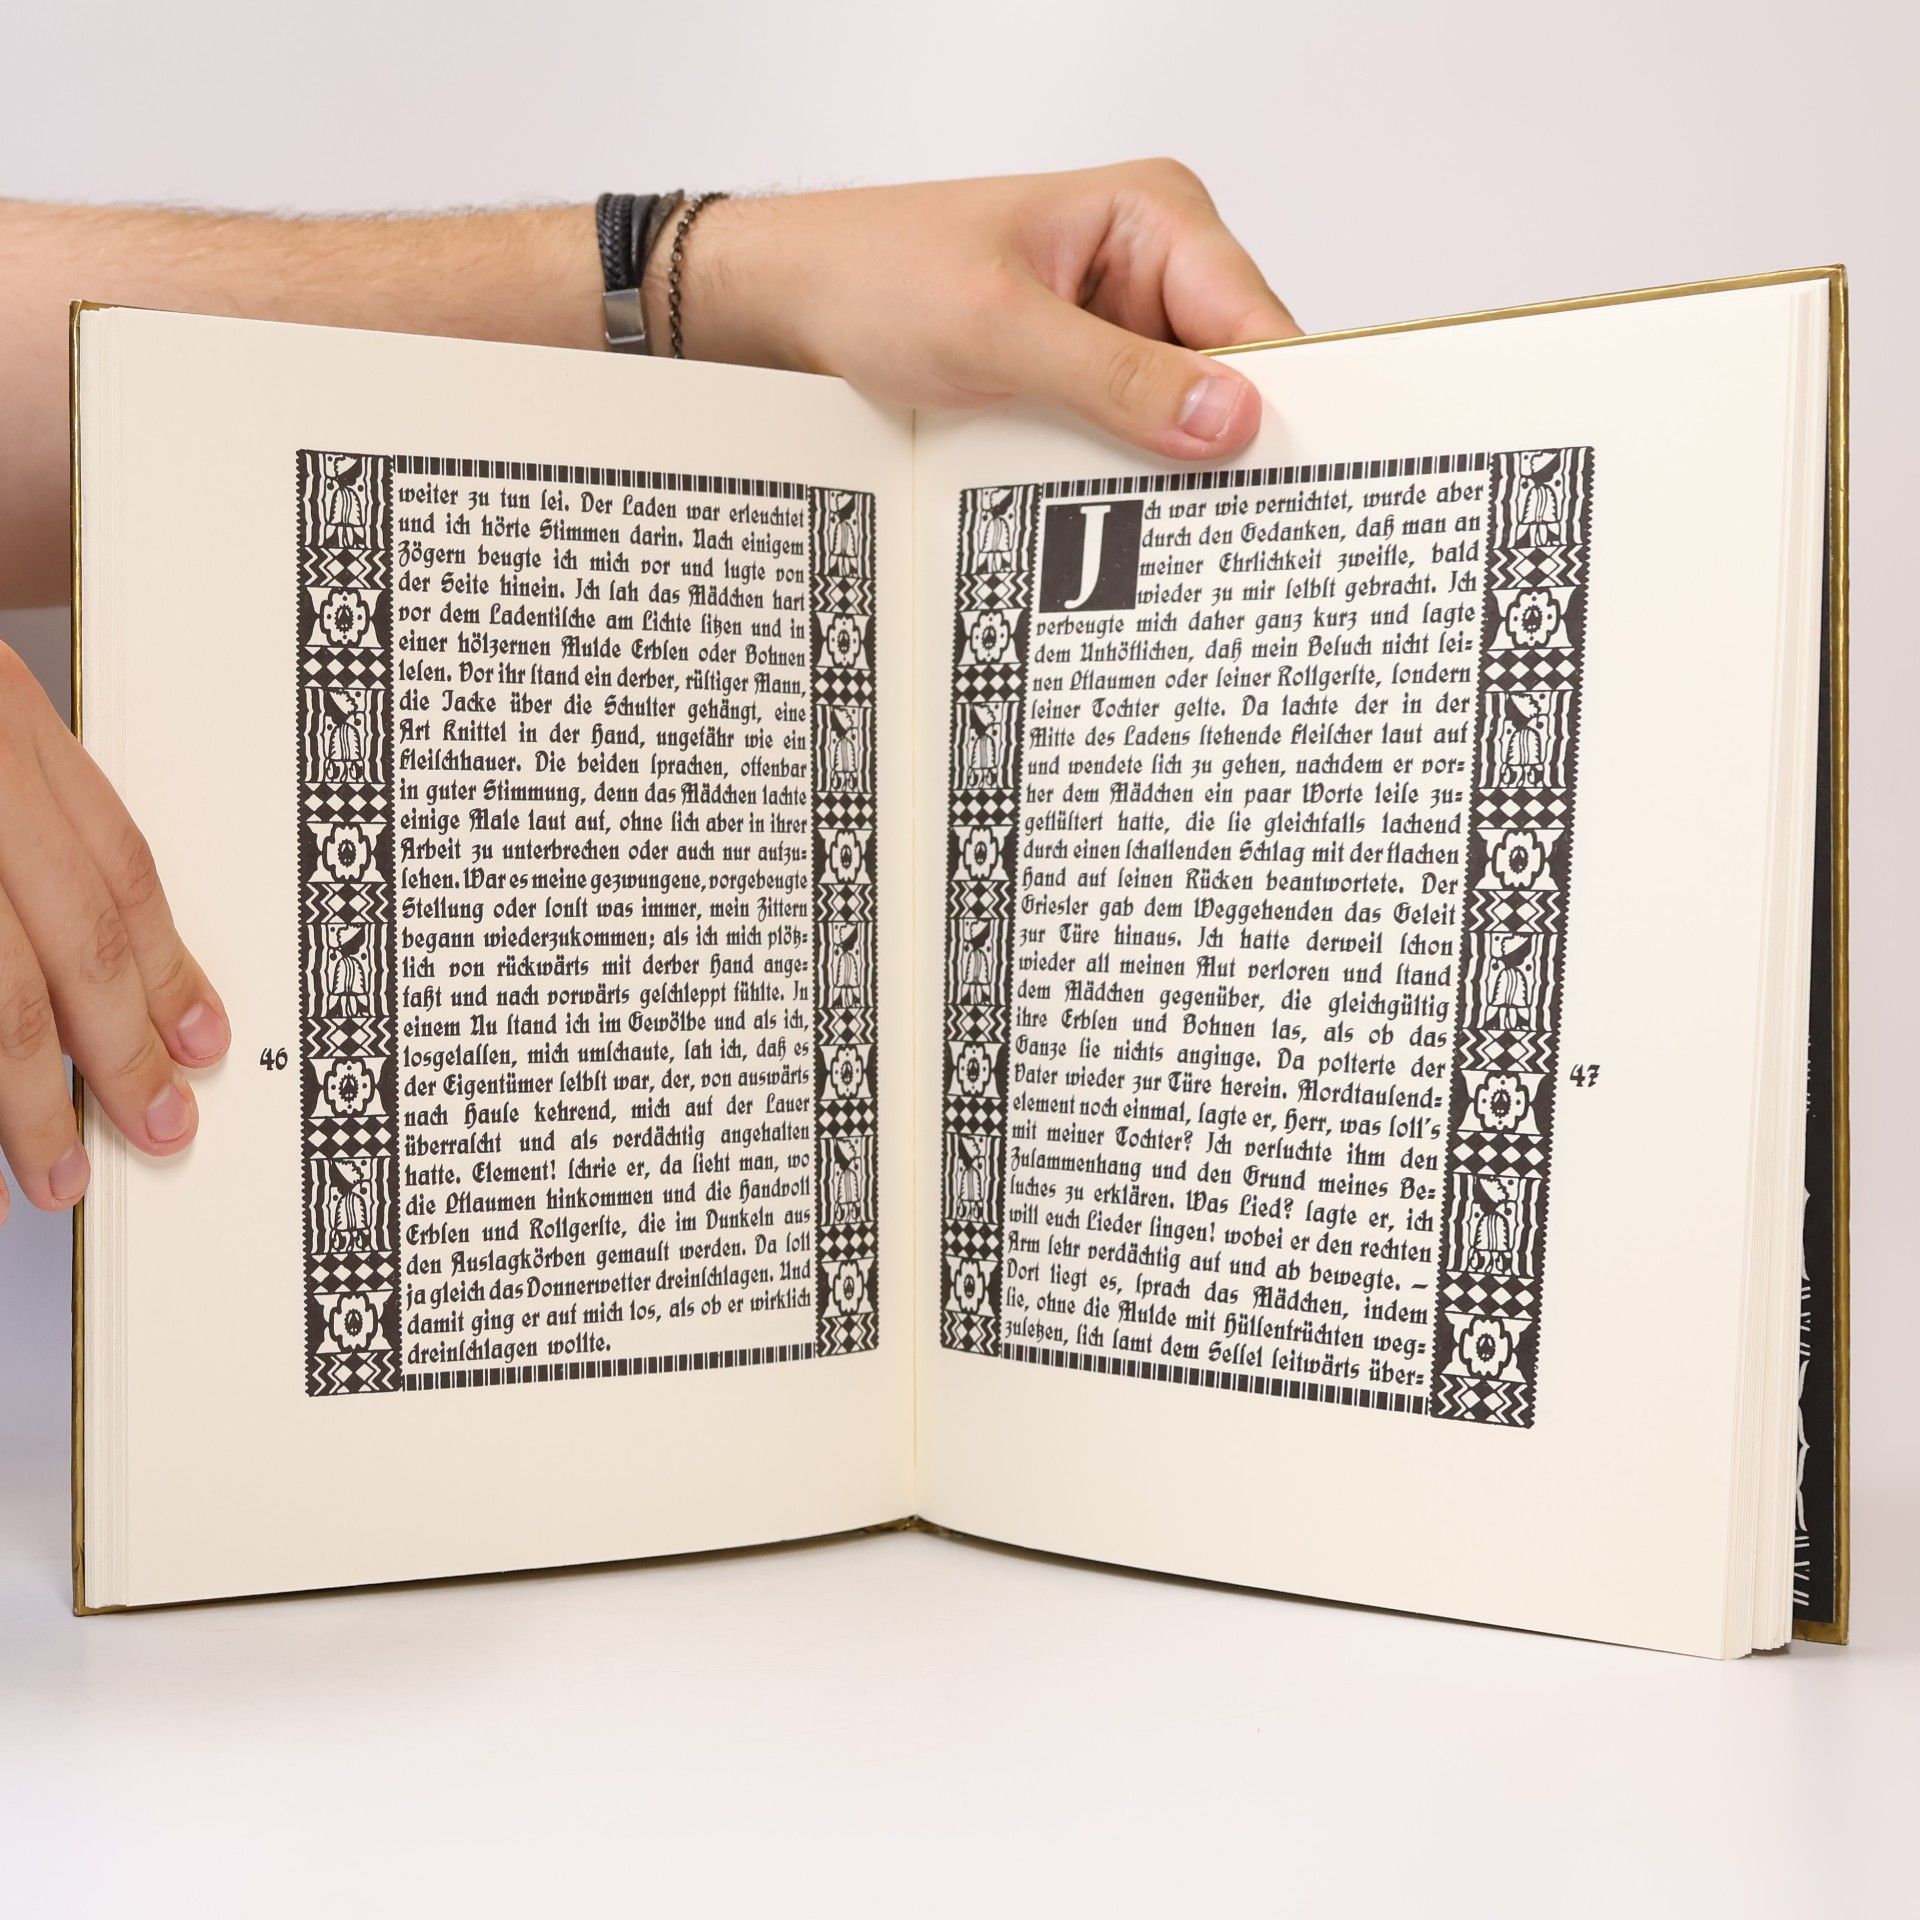 weiter zu tun ſei. Der Laden war erleuchtet
und ich hörte Stimmen darin. Nach einigem
Zögern beugte ich mich vor und lugte von
der Seite hinein. Ich ſah das Mädchen hart
vor dem Ladentiſche am Lichte ſitzen und in
einer hölzernen Mulde Erbſen oder Bohnen
leſen. Vor ihr ſtand ein derber, rüſtiger Mann,
die Jacke über die Schulter gehängt, eine
Art Knittel in der Hand, ungefähr wie ein
Fleiſchhauer. Die beiden ſprachen, offenbar
in guter Stimmung, denn das Mädchen lachte
einige Male laut auf, ohne ſich aber in ihrer
Arbeit zu unterbrechen oder auch nur aufzu⸗
ſehen. War es meine gezwungene, vorgebeugte
Stellung oder ſonſt was immer, mein Zittern
begann wiederzukommen; als ich mich plötz⸗
lich von rückwärts mit derber Hand ange⸗
faßt und nach vorwärts geſchleppt fühlte. In
einem Nu ſtand ich im Gewölbe und als ich,
losgelaſſen, mich umſchaute, ſah ich, daß es
der Eigentümer ſelbſt war, der, von auswärts
nach Hauſe kehrend, mich auf der Lauer
überraſcht und als verdächtig angehalten
hatte. Element! ſchrie er, da ſieht man, wo
die Pflaumen hinkommen und die Handvoll
Erbſen und Rollgerſte, die im Dunkeln aus
den Auslagkörben gemauſt werden. Da ſoll
ja gleich das Donnerwetter dreinſchlagen. Und
damit ging er auf mich los, als ob er wirklich
dreinſchlagen wollte.
46
Ich war wie vernichtet, wurde aber
durch den Gedanken, daß man an
meiner Ehrlichkeit zweifle, bald
wieder zu mir ſelbſt gebracht. Ich
verbeugte mich daher ganz kurz und ſagte
dem Unhöflichen, daß mein Beſuch nicht ſei⸗
nen Pflaumen oder ſeiner Rollgerſte, ſondern
ſeiner Tochter gelte. Da lachte der in der
Mitte des Ladens ſtehende Fleiſcher laut auf
und wendete ſich zu gehen, nachdem er vor⸗
her dem Mädchen ein paar Worte leiſe zu⸗
geflüſtert hatte, die ſie gleichfalls lachend
durch einen ſchallenden Schlag mit der flachen
Hand auf ſeinen Rücken beantwortete. Der
Griesler gab dem Weggehenden das Geleit
zur Türe hinaus. Ich hatte derweil ſchon
wieder all meinen Mut verloren und ſtand
dem Mädchen gegenüber, die gleichgültig
ihre Erbſen und Bohnen las, als ob das
Ganze ſie nichts anginge. Da polterte der
Vater wieder zur Türe herein. Mordtauſend⸗
element noch einmal, ſagte er, Herr, was ſoll's
mit meiner Tochter? Ich verſuchte ihm den
Zuſammenhang und den Grund meines Be⸗
ſuches zu erklären. Was Lied? ſagte er, ich
will euch Lieder ſingen! wobei er den rechten
Arm ſehr verdächtig auf und ab bewegte. —
Dort liegt es, ſprach das Mädchen, indem
ſie, ohne die Mulde mit Hülſenfrüchten weg⸗
zuſetzen, ſich ſamt dem Seſſel ſeitwärts über⸗
47